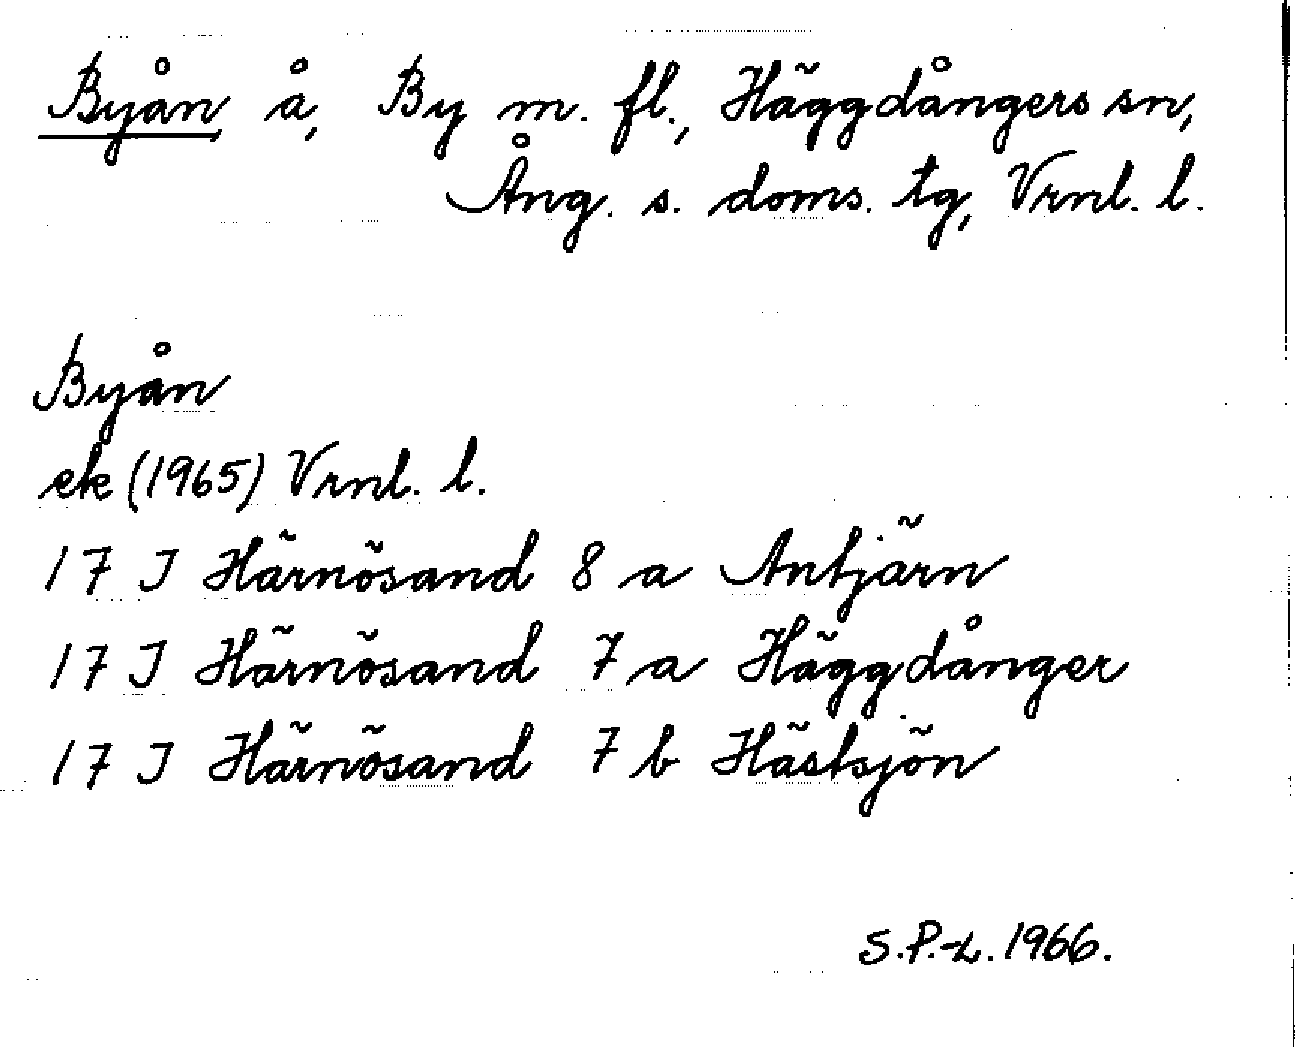 Byån å, By m. fl., Häggdångers sn,
Ång. s. doms. tg, Vrnl. l.
Byån
ek (1965) Vrnl. l.
17 J Härnösand 8 a Antjärn
17 J Härnösand 7 a Häggdånger
17 J Härnösand 7 b Hästsjön
S.P.-L. 1966.